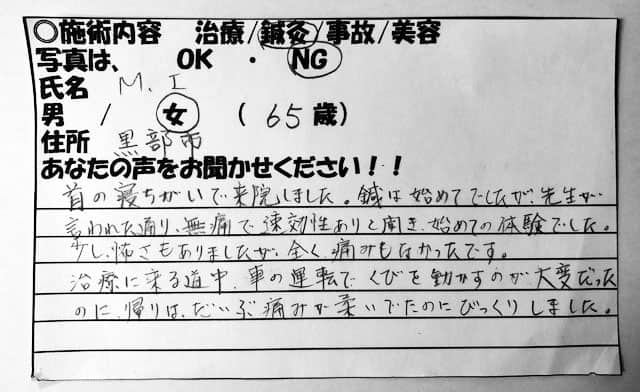 ○施術内容 治療/鍼灸/事故/美容
写真は、 OK ・ NG
氏名 M.I
男 / 女 ( 65 歳)
住所 黒部市
あなたの声をお聞かせください！！
首の寝ちがいで来院しました。鍼は始めてでしたが、先生が
言われた通り、無痛で速効性ありと聞き、始めての体験でした。
少し怖さもありましたが、全く痛みもなかったです。
治療に来る道中、車の運転でくびを動かすのが大変だった
のに、帰りは、だいぶ痛みが柔いでたのにびっくりしました。